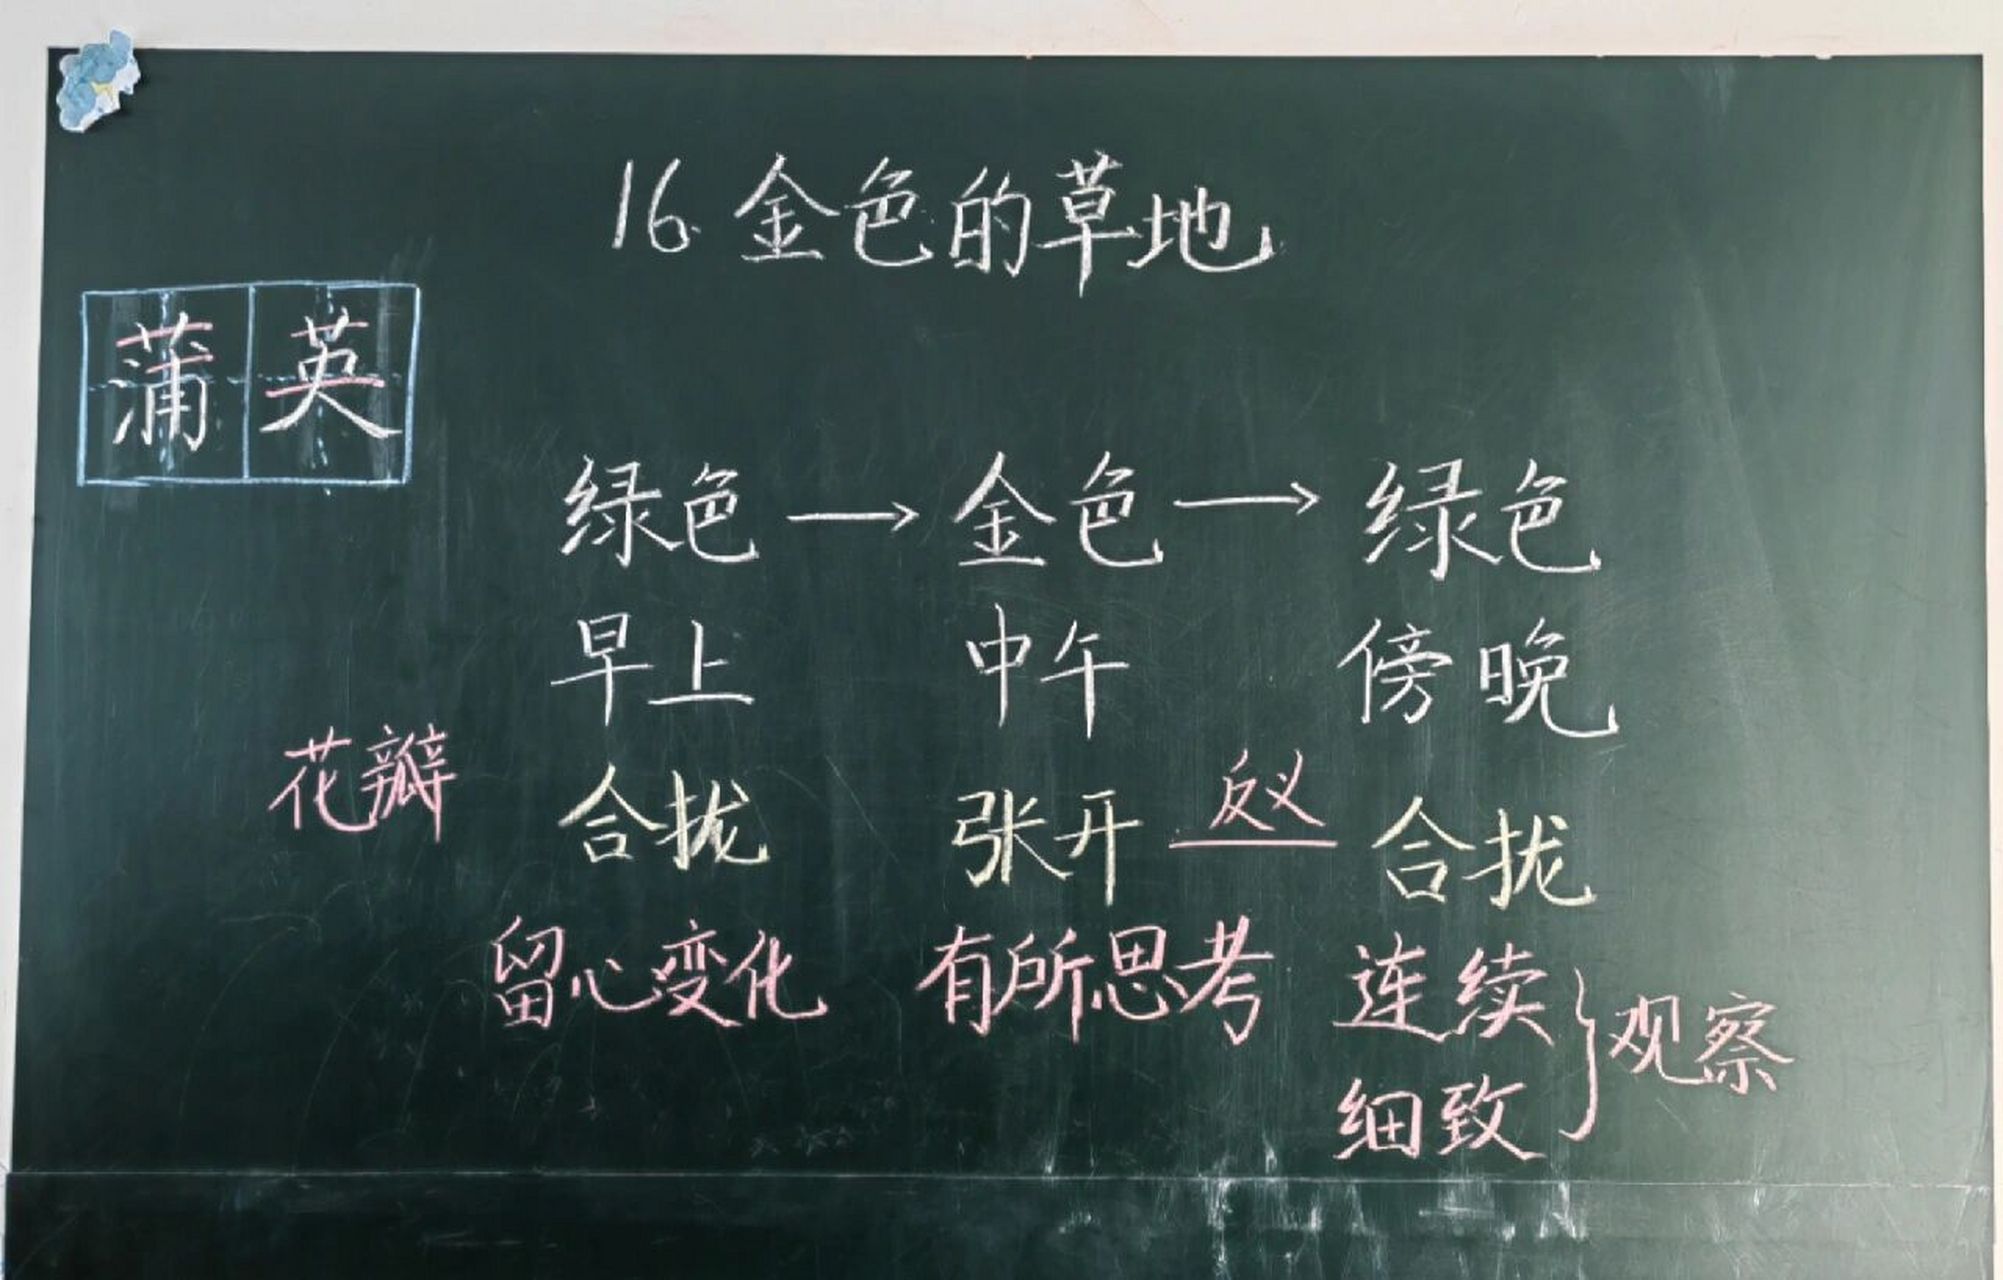 16.金色的草地
蒲英
绿色→金色→绿色
早上 中午 傍晚
花瓣 合拢 张开 反义 合拢
留心变化 有所思考 连续
细致
}观察